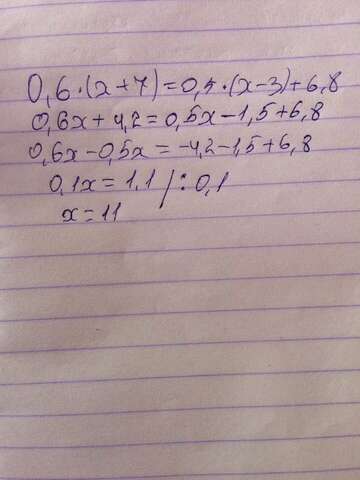 0,6·(x+7)=0,5·(x-3)+6,8
0,6x+4,2=0,5x-1,5+6,8
0,6x-0,5x=-4,2-1,5+6,8
0,1x=1,1 /:0,1
x=11